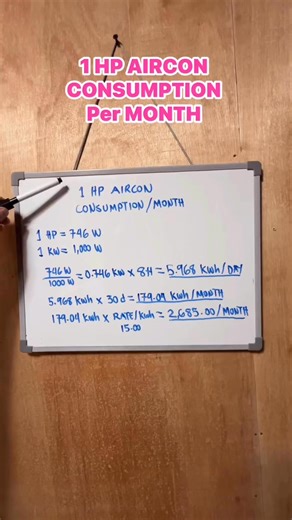 1 HP AIRCON
CONSUMPTION
Per MONTH
1 HP AIRCON
CONSUMPTION/MONTH
1 HP = 746 W
1 KW = 1,000 W
746 W
1000 W
= 0.746 KW x 8H = 5.968 KWH/DAY
5.968 KWH x 30 d = 179.04 KWH/MONTH
179.04 KWH x RATE/KWH = 2,685.00/MONTH
15.00